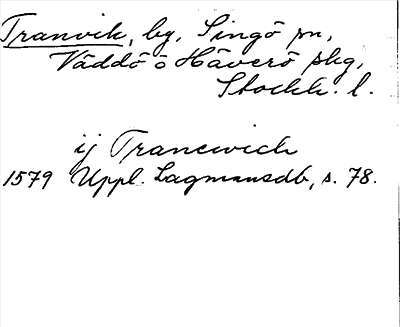 Tranvik, by, Singö sn,
Väddö o Häverö skg,
Stockh. l.
ij Trancwich
1579 Uppl. Lagmansdb, s. 78.